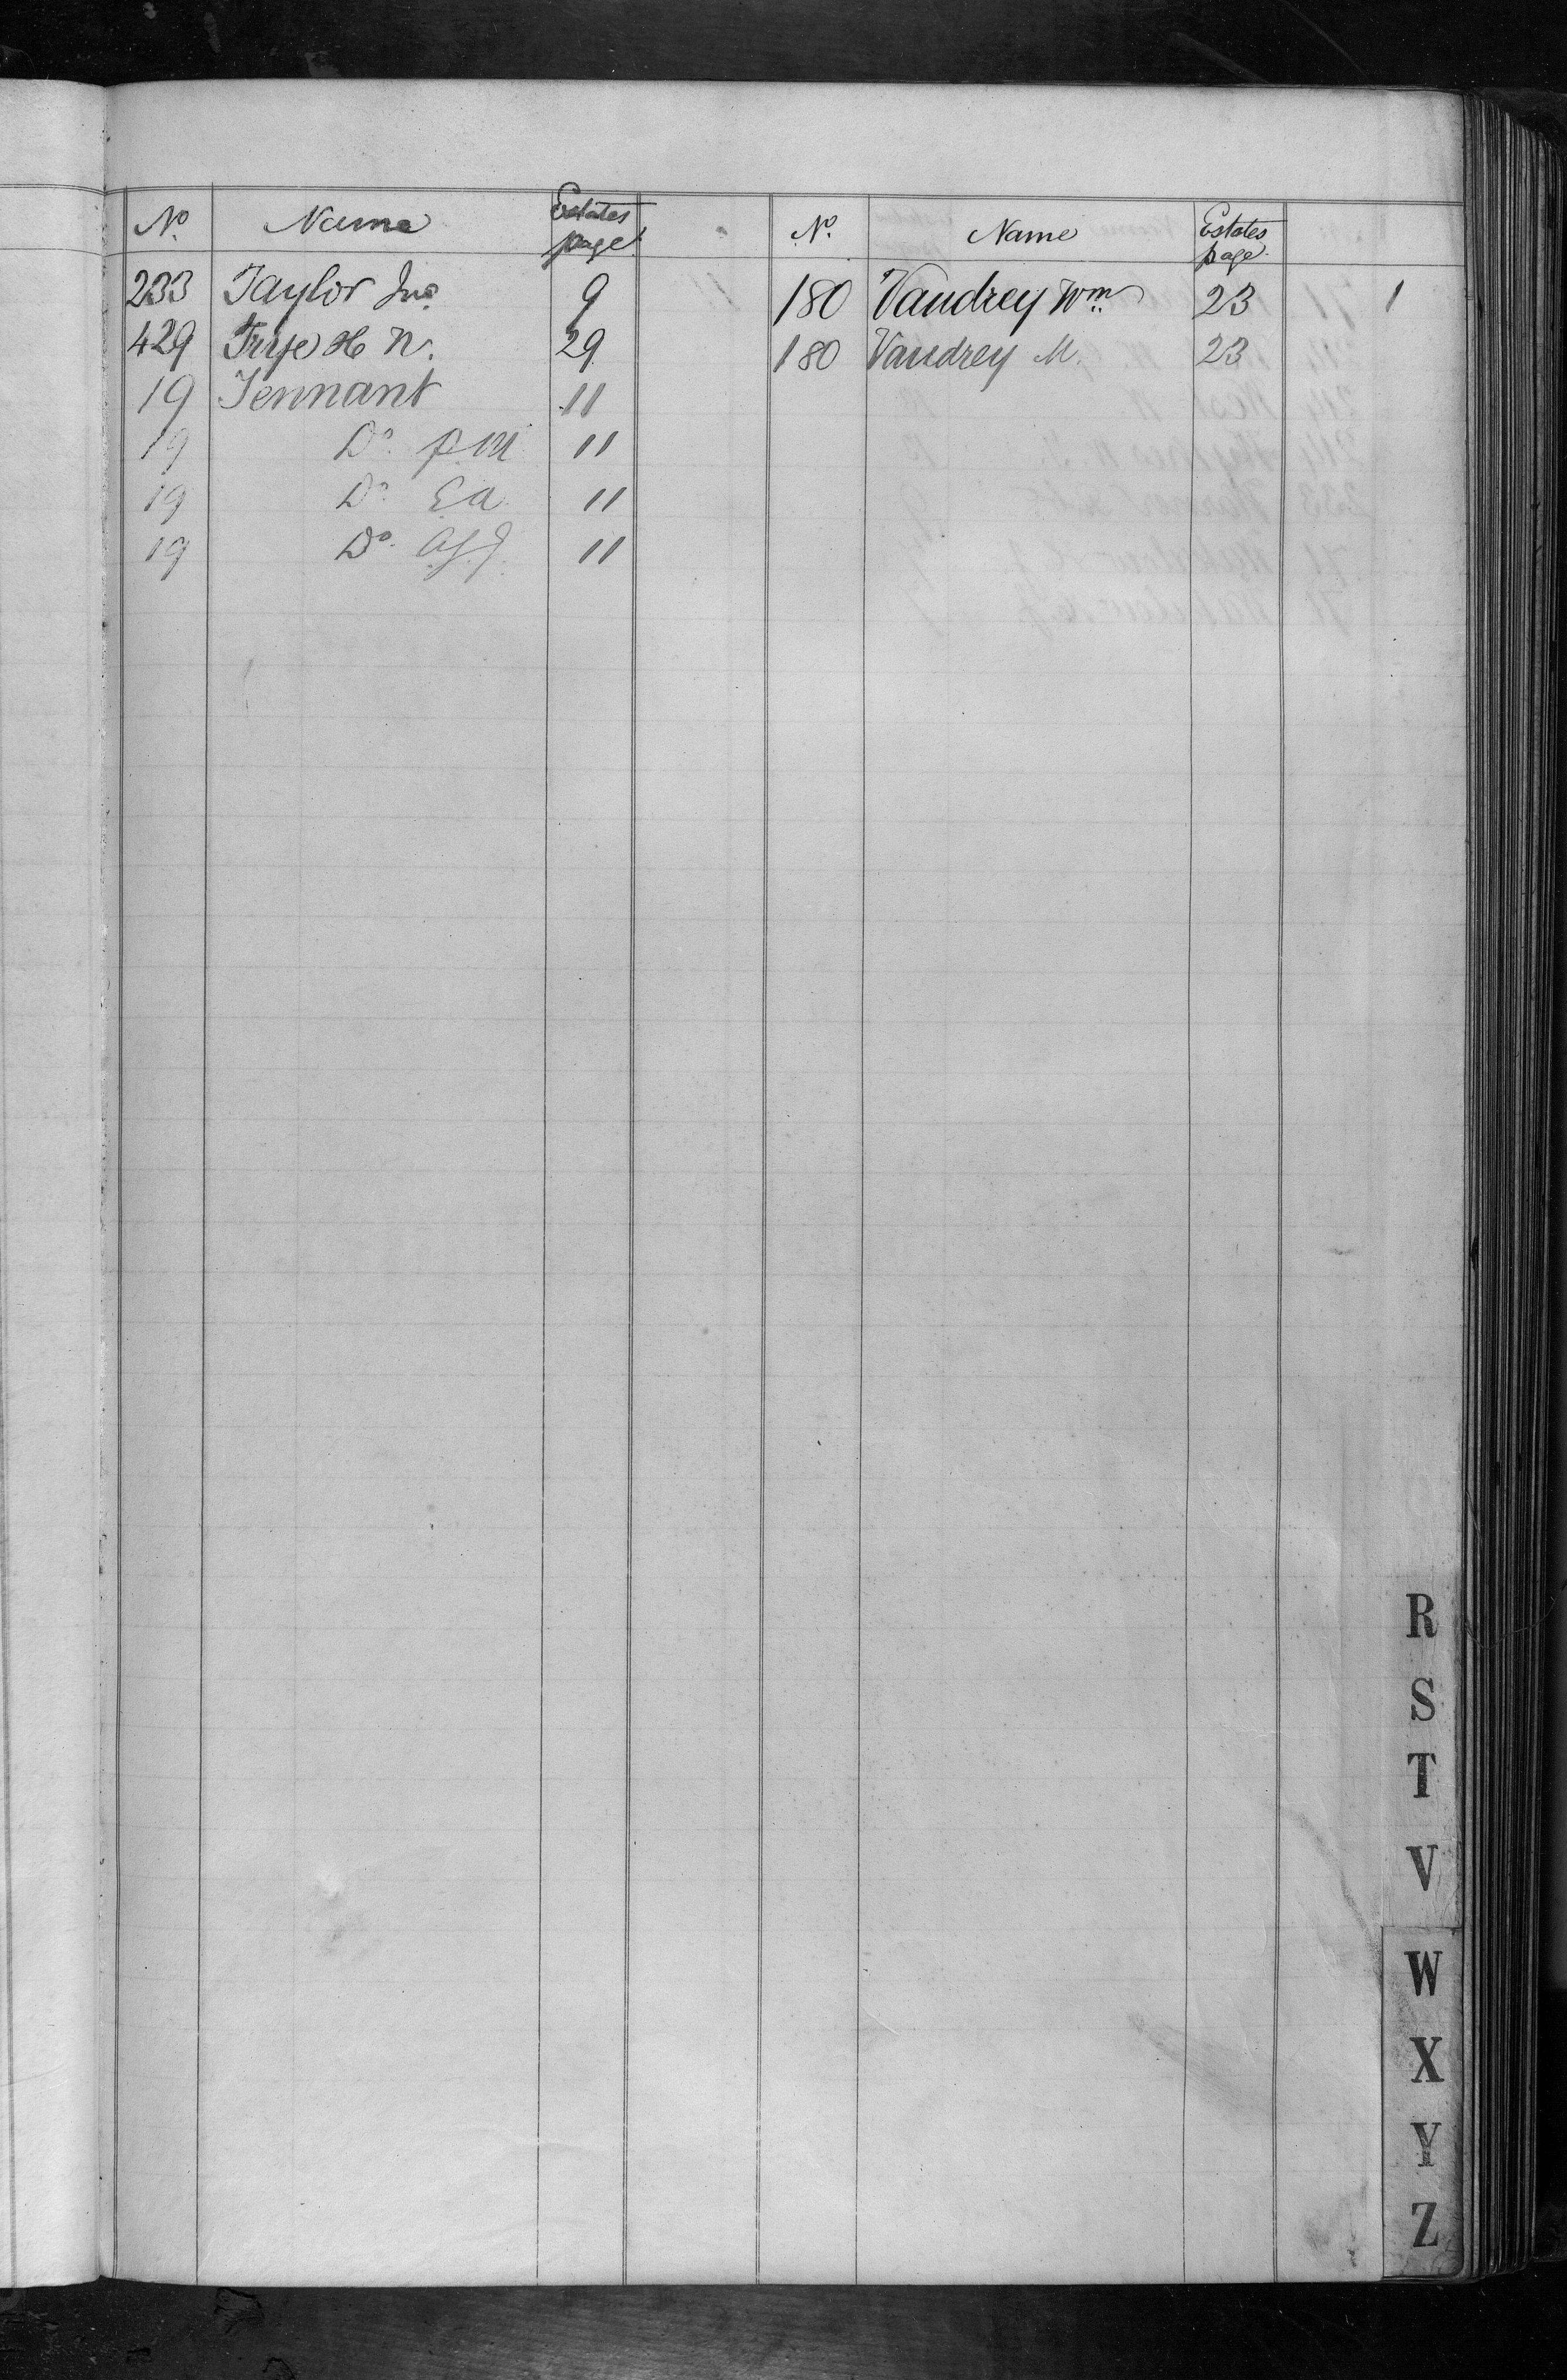 No. Name Estates page
233 Taylor Jno. 9
429 Frye H N. 29
19 Tennant 11
19 Do. P M 11
19 Do. E A 11
19 Do. 11
No. Name Estates page
180 Vaudrey Wm. 23 1
180 Vaudrey M. 23
R
S
T
V
W
X
Y
Z